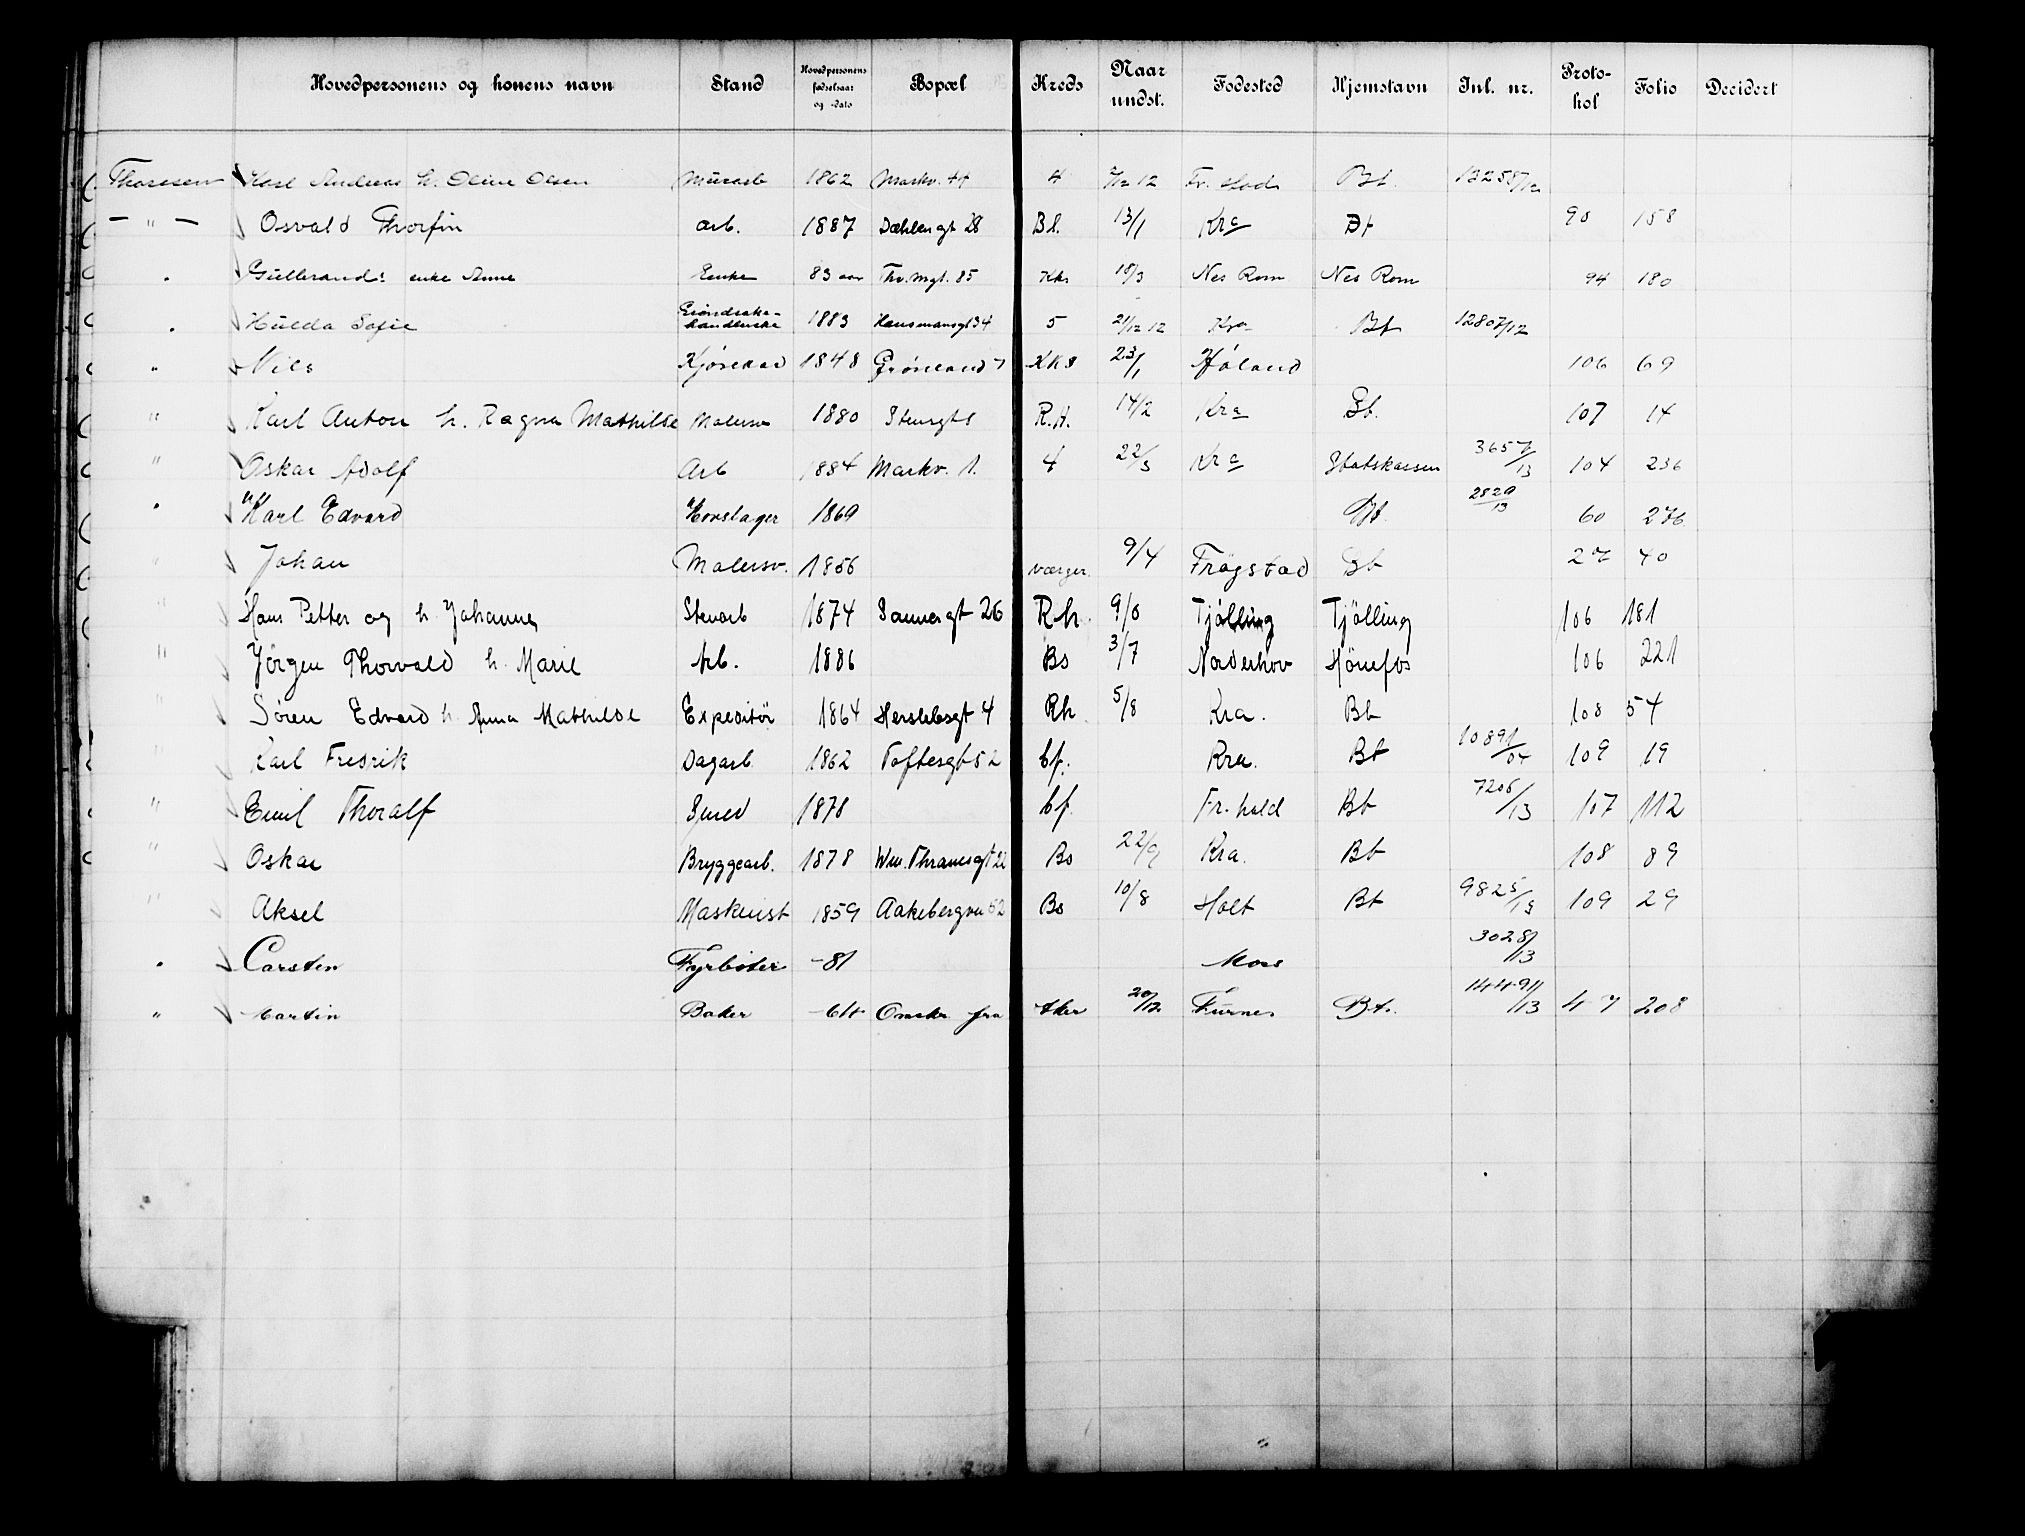 Hovedpersonens og konens navn Stand Hovedpersonens fødselsaar og -dato Bopæl Kreds Naar undst. Fødested Hjemstavn Inl. nr. Proto-kol Folio Decidert
Thoresen Karl Andreas h. Oline Olsen Murarb 1862 Markv. 44 4 12 Fr. stad Bt. 13258/12
— " — Osvald Thorfin arb. 1887 Dæhlengt 28 Bl. 13/1 Kra Bt 90 158
" Gulbrands enke Anne Enke 83 aar Thv. Mgt. 85 Kks 18/3 Nes Rom Nes Rom 94 180
" Hulda Sofie 1883 Hausmansgt 34 5 21/12 12 Kra Bt 12807/12
" Nils 1848 Grønland 7 KKs 23/1 Høland 106 69
" Karl Anton h. Ragna Mathilde Malersv 1880 Stensgt 8 R.H. 14/2 Kra Bt. 107 14
" Oskar Adolf Arb 1884 Markv. 1. 4 22/3 Kra Statskassen 3657/13 104 236
" Karl Edvard Hovslager 1869 Bt 2829/13 60 276
" Johan Malersv. 1856 værger 9/4 Frøgstad Bt 27 40
" Hans Petter og h. Johanne Stenarb 1874 Sannergt 26 R.h. Tjølling Tjølling 106 181
" Jørgen Thorvald h. Marie Arb. 1886 Bs 3/7 Norderhov Hønefos 106 221
" Søren Edvard h. Anna Mathilde Expeditør 1864 Herslebsgt 4 Rh 5/8 Kra. Bt 108 54
" Karl Fredrik Dagarb. 1862 Toftesgt 52 bf. Kra. Bt 10891/04 109 19
" Emil Thoralf Smed 1878 bf. Fr. hald Bt 7206/13 107 112
" Oskar Bryggearb. 1878 Wm. Thranesgt 22 Bs 22/9 Kra. Bt 108 89
" Aksel Maskinist 1859 Aakebergvn 52 Bs 10/8 Holt Bt 9825/13 109 29
" Carsten Fyrbøter -81 Moss 3028/13
" Martin Baker -64 Omskr fra Aker 20/12 Furnes Bt. 14491/13 47 208